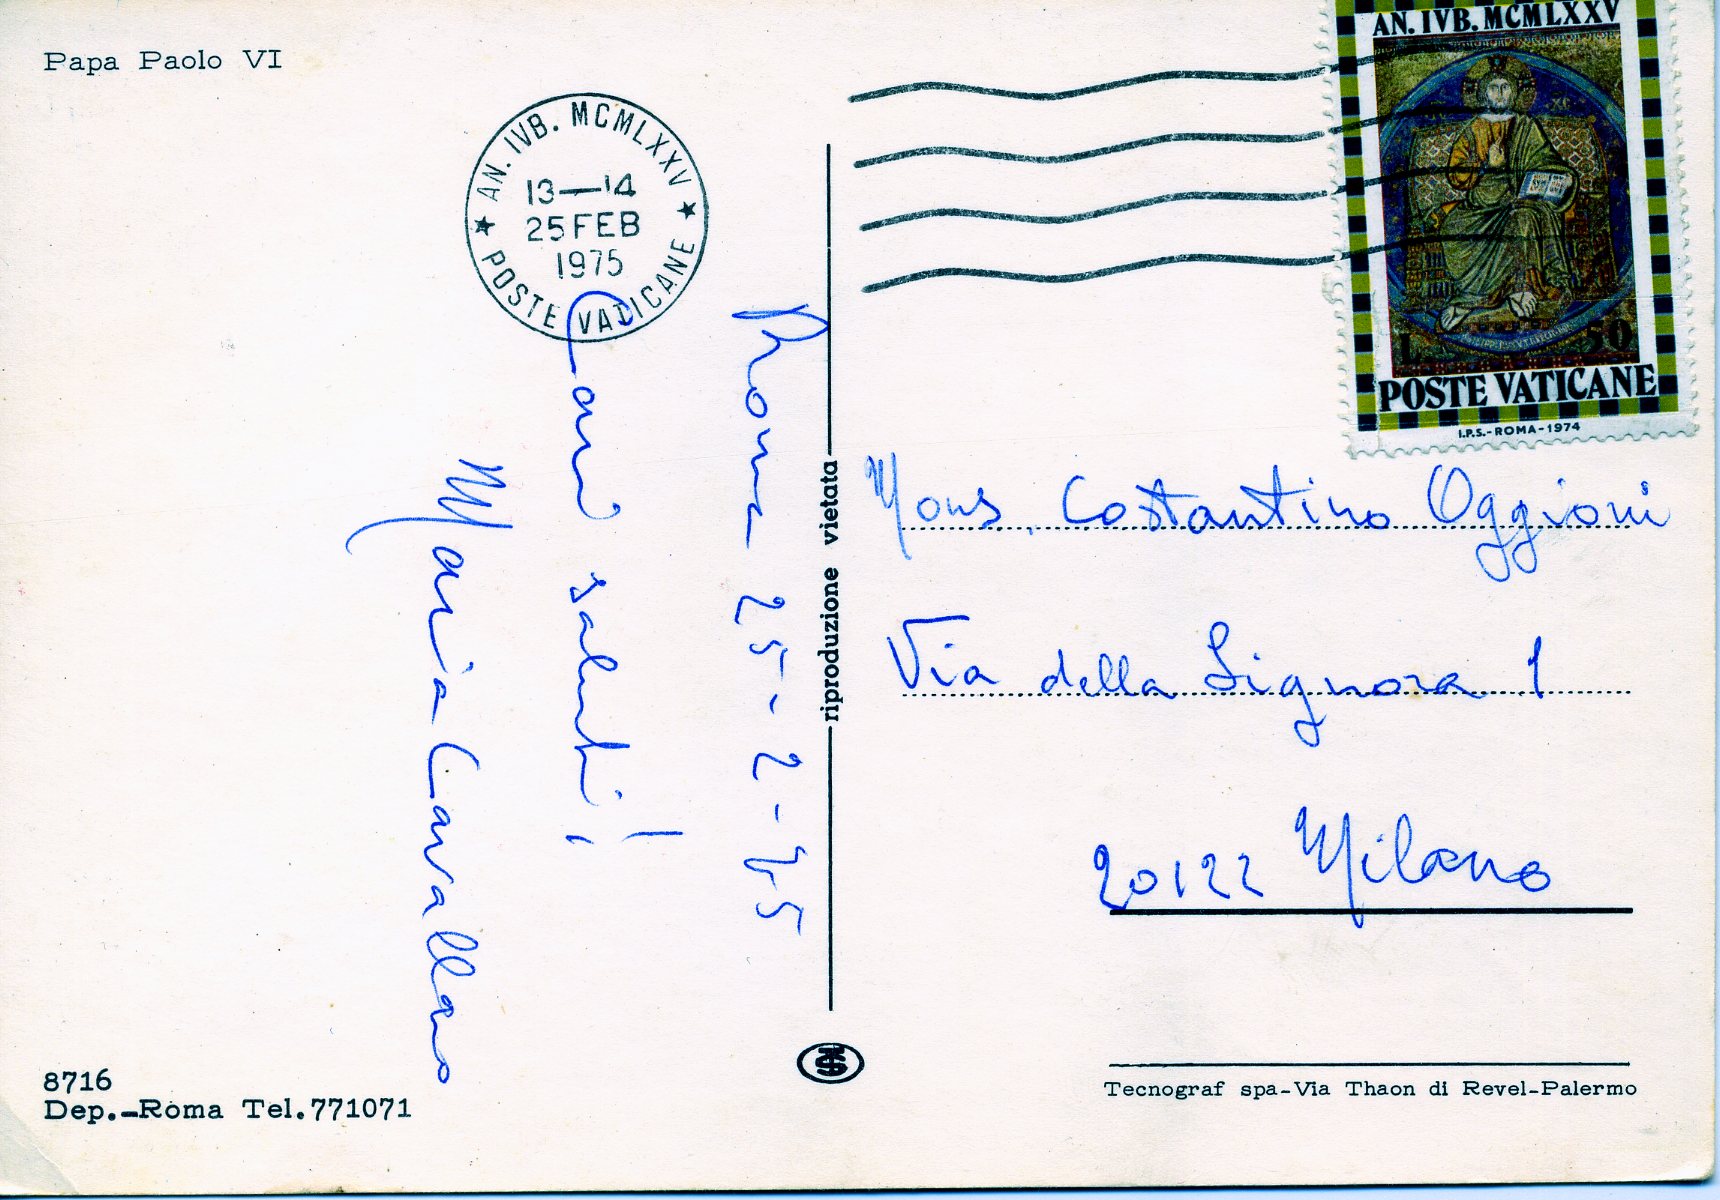 Papa Paolo VI
AN. IVB. MCMLXXV
13—14
25 FEB
1975
POSTE VATICANE
Roma 25-2-75
Cari saluti!
Maria Cavallano
8716
Dep.-Roma Tel.771071
riproduzione vietata
AN. IVB. MCMLXXV
L 50
POSTE VATICANE
I.P.S.-ROMA-1974
Mons. Costantino Oggioni
Via della Signora 1
20122 Milano
Tecnograf spa-Via Thaon di Revel-Palermo